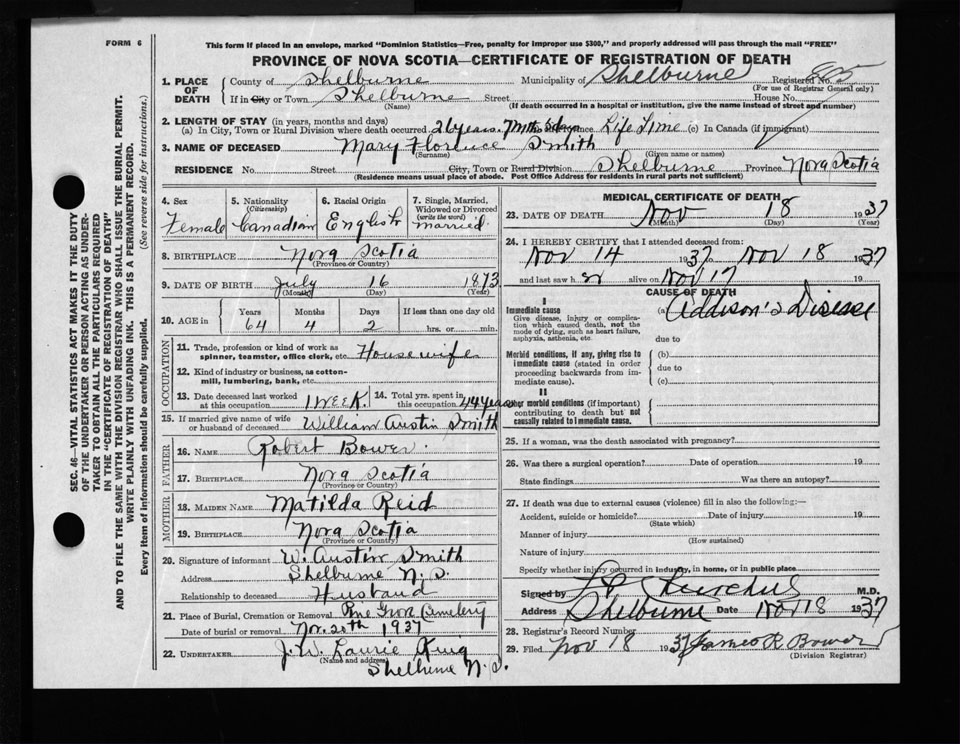 FORM 6
This form if placed in an envelope, marked "Dominion Statistics—Free, penalty for improper use $300," and properly addressed will pass through the mail "FREE"
PROVINCE OF NOVA SCOTIA—CERTIFICATE OF REGISTRATION OF DEATH
SEC. 46—VITAL STATISTICS ACT MAKES IT THE DUTY
OF THE UNDERTAKER OR PERSON ACTING AS UNDER-
TAKER TO OBTAIN ALL THE PARTICULARS REQUIRED
IN THE "CERTIFICATE OF REGISTRATION OF DEATH"
AND TO FILE THE SAME WITH THE DIVISION REGISTRAR WHO SHALL ISSUE THE BURIAL PERMIT.
WRITE PLAINLY WITH UNFADING INK. THIS IS A PERMANENT RECORD.
Every item of information should be carefully supplied. (See reverse side for instructions.)
1. PLACE OF DEATH County of Shelburne Municipality of Shelburne Registered No. 805
(For use of Registrar General only)
If in City or Town Shelburne Street House No.
(Name) (If death occurred in a hospital or institution, give the name instead of street and number)
2. LENGTH OF STAY (in years, months and days)
(a) In City, Town or Rural Division where death occurred 26 years. 7 mths 5 days Province Life Time (c) In Canada (if immigrant)
3. NAME OF DECEASED Mary Florence Smith
(Surname) (Given name or names)
RESIDENCE No. Street City, Town or Rural Division Shelburne Province Nova Scotia
(Residence means usual place of abode. Post Office Address for residents in rural parts not sufficient)
4. Sex Female
5. Nationality (Citizenship) Canadian
6. Racial Origin English
7. Single, Married, Widowed or Divorced (write the word) married
8. BIRTHPLACE Nova Scotia
(Province or Country)
9. DATE OF BIRTH July 16 1873
(Month) (Day) (Year)
10. AGE in Years Months Days If less than one day old
64 4 2 hrs. or min.
OCCUPATION
11. Trade, profession or kind of work as spinner, teamster, office clerk, etc. Housewife
12. Kind of industry or business, as cotton-mill, lumbering, bank, etc.
13. Date deceased last worked at this occupation 1 WEEK. 14. Total yrs. spent in this occupation 44 years
15. If married give name of wife or husband of deceased William Austin Smith
FATHER
16. NAME Robert Bower.
17. BIRTHPLACE Nova Scotia
(Province or Country)
MOTHER
18. MAIDEN NAME Matilda Reid
19. BIRTHPLACE Nova Scotia
(Province or Country)
20. Signature of informant W. Austin Smith
Address Shelburne N.S.
Relationship to deceased Husband
21. Place of Burial, Cremation or Removal Pine Grove Cemetery
Date of burial or removal Nov. 20th 1937
22. UNDERTAKER J. W. Laurie King
(Name and address) Shelburne N.S.
MEDICAL CERTIFICATE OF DEATH
23. DATE OF DEATH Nov 18 1937
(Month) (Day) (Year)
24. I HEREBY CERTIFY that I attended deceased from:
Nov 14 1937 to Nov 18 1937
and last saw her alive on Nov 17 19
CAUSE OF DEATH
I
Immediate cause (a) Addison's Disease
Give disease, injury or complication which caused death, not the mode of dying, such as heart failure, asphyxia, asthenia, etc.
due to
Morbid conditions, if any, giving rise to immediate cause (stated in order proceeding backwards from immediate cause). (b)
due to
(c)
II
Other morbid conditions (if important) contributing to death but not causally related to immediate cause.
25. If a woman, was the death associated with pregnancy?
26. Was there a surgical operation? Date of operation 19
State findings Was there an autopsy?
27. If death was due to external causes (violence) fill in also the following:—
Accident, suicide or homicide? Date of injury 19
(State which)
Manner of injury
(How sustained)
Nature of injury
Specify whether injury occurred in industry, in home, or in public place
Signed by M.D.
Address Shelburne Date Nov 18 1937
28. Registrar's Record Number
29. Filed Nov 18 1937 James R Bower
(Division Registrar)